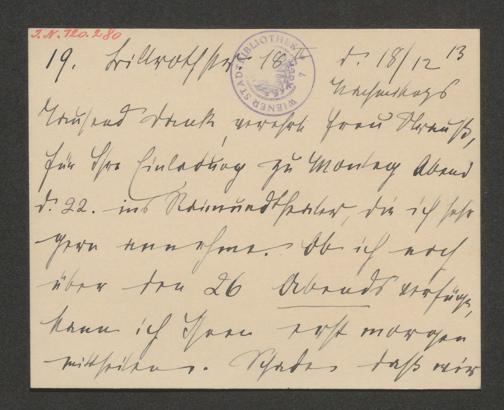 J.N. 120.280
19. Billrothstr. 18
d. 18/12 13
WIENER STADTBIBLIOTHEK
Nachmittags
Tausend Dank, verehrte Frau Strauß,
für Ihre Einladung zu Montag Abend
d. 22. ins Raimundtheater, die ich sehr
gern annehme. Ob ich noch
über den 26 Abends verfüge,
kann ich Ihnen erst morgen
mittheilen. Schade daß wir